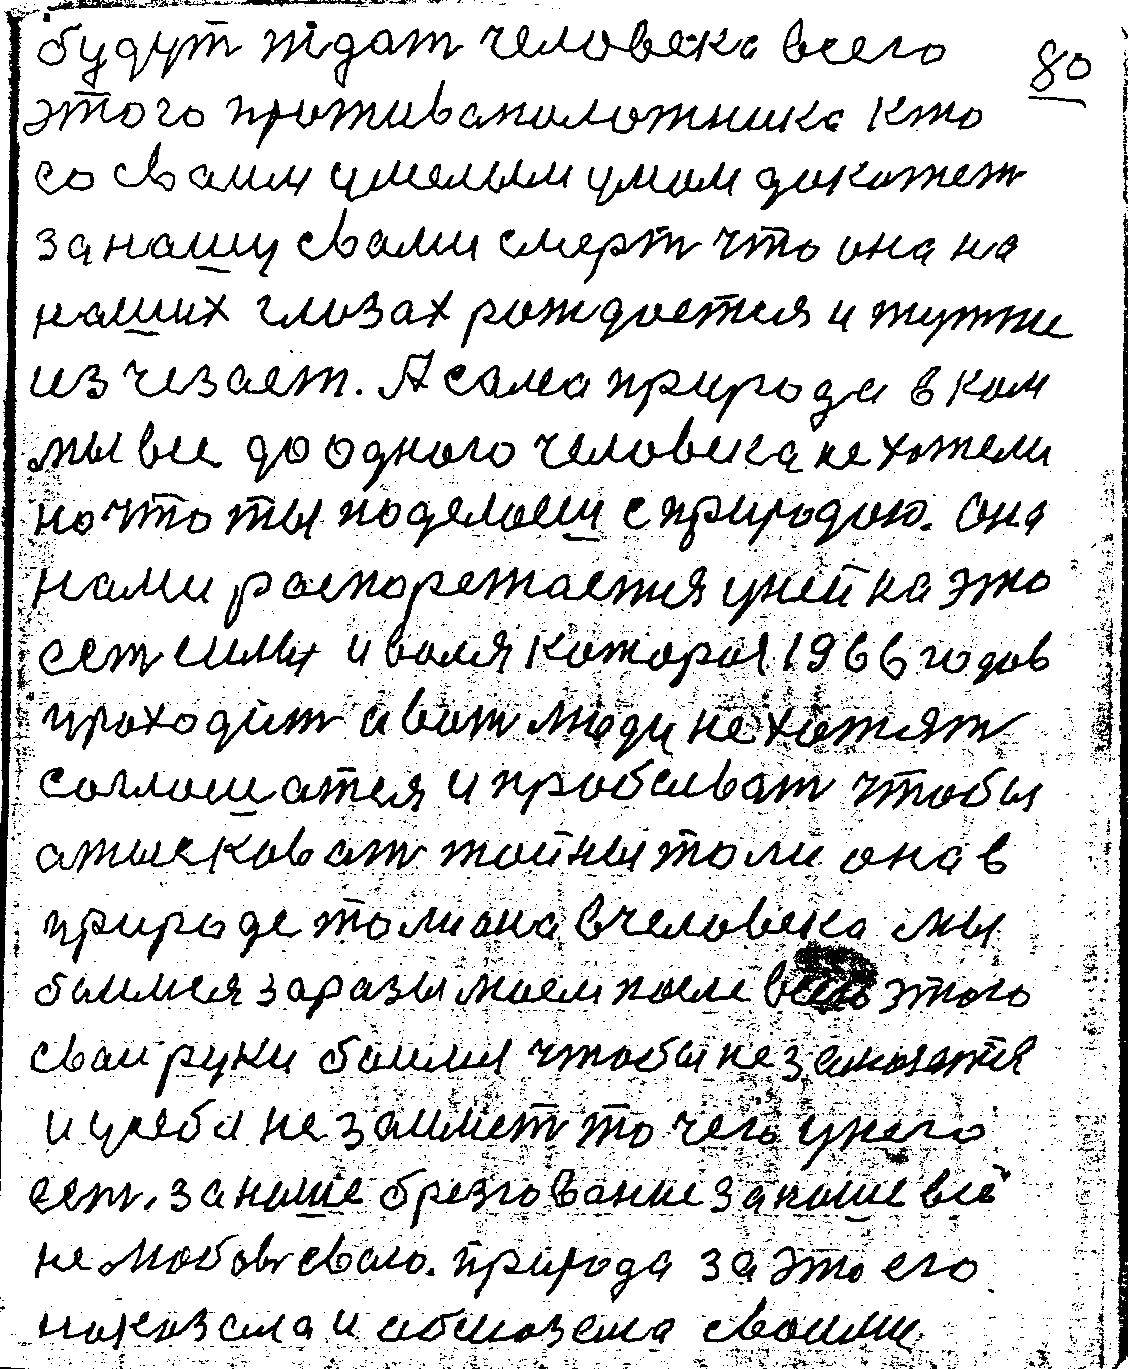 будут ждат человека всего
80
этого противаположника кто
со сваим умелым умом докажет
за нашу свами смерт что она на
наших глазах рождается и тутже
изчезает. А сама природа в ком
мы все до одного человека не хотели
но что ты поделаеш с природою. Она
нами распорежается у ней на это
ест силы и воля которая 1966 годов
проходит а вот люди не хотят
соглошатся и пробоват чтобы
атысковат тайны то ли она в
природе то ли она в человека мы
боимся заразы моем после всего этого
сваи руки боимся чтобы не
и у себя не займет то чего у него
ест. за наше брезгование за наше всё
не любов свою. природа за это его
наказала и своими